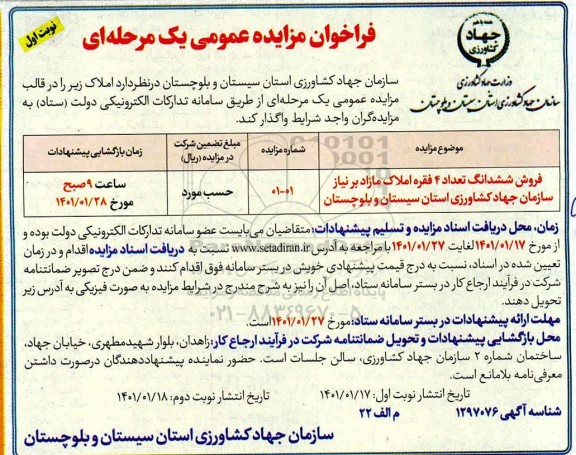 نوبت اول
فراخوان مزایده عمومی یک مرحله‌ای
جهاد
کشاورزی
وزارت جهاد کشاورزی
سازمان جهاد کشاورزی استان سیستان و بلوچستان
سازمان جهاد کشاورزی استان سیستان و بلوچستان درنظردارد املاک زیر را در قالب
مزایده عمومی یک مرحله‌ای از طریق سامانه تدارکات الکترونیکی دولت (ستاد) به
مزایده‌گران واجد شرایط واگذار کند.
موضوع مزایده
شماره مزایده
مبلغ تضمین شرکت در مزایده (ریال)
زمان بازگشایی پیشنهادات
فروش ششدانگ تعداد ۴ فقره املاک مازاد بر نیاز
سازمان جهاد کشاورزی استان سیستان و بلوچستان
۰۱-۰۱
حسب مورد
ساعت ۹ صبح
مورخ ۱۴۰۱/۰۱/۲۸
زمان، محل دریافت اسناد مزایده و تسلیم پیشنهادات: متقاضیان می‌بایست عضو سامانه تدارکات الکترونیکی دولت بوده و
از مورخ ۱۴۰۱/۰۱/۱۷ لغایت ۱۴۰۱/۰۱/۲۷ با مراجعه به آدرس www.setadiran.ir نسبت به دریافت اسناد مزایده اقدام و در زمان
تعیین شده در اسناد، نسبت به درج قیمت پیشنهادی خویش در بستر سامانه فوق اقدام کنند و ضمن درج تصویر ضمانتنامه
شرکت در فرآیند ارجاع کار در بستر سامانه ستاد، اصل آن را نیز به شرح مندرج در شرایط مزایده به صورت فیزیکی به آدرس زیر
تحویل دهند.
۰۲۱-۸۸۳۴۹۶۷۰-۵
مهلت ارائه پیشنهادات در بستر سامانه ستاد: مورخ ۱۴۰۱/۰۱/۲۷ است.
محل بازگشایی پیشنهادات و تحویل ضمانتنامه شرکت در فرآیند ارجاع کار: زاهدان، بلوار شهید مطهری، خیابان جهاد،
ساختمان شماره ۲ سازمان جهاد کشاورزی، سالن جلسات است. حضور نماینده پیشنهاددهندگان درصورت داشتن
معرفی‌نامه بلامانع است.
تاریخ انتشار نوبت اول: ۱۴۰۱/۰۱/۱۷ تاریخ انتشار نوبت دوم: ۱۴۰۱/۰۱/۱۸
شناسه آگهی ۱۲۹۷۰۷۶ م الف ۲۲
سازمان جهاد کشاورزی استان سیستان و بلوچستان